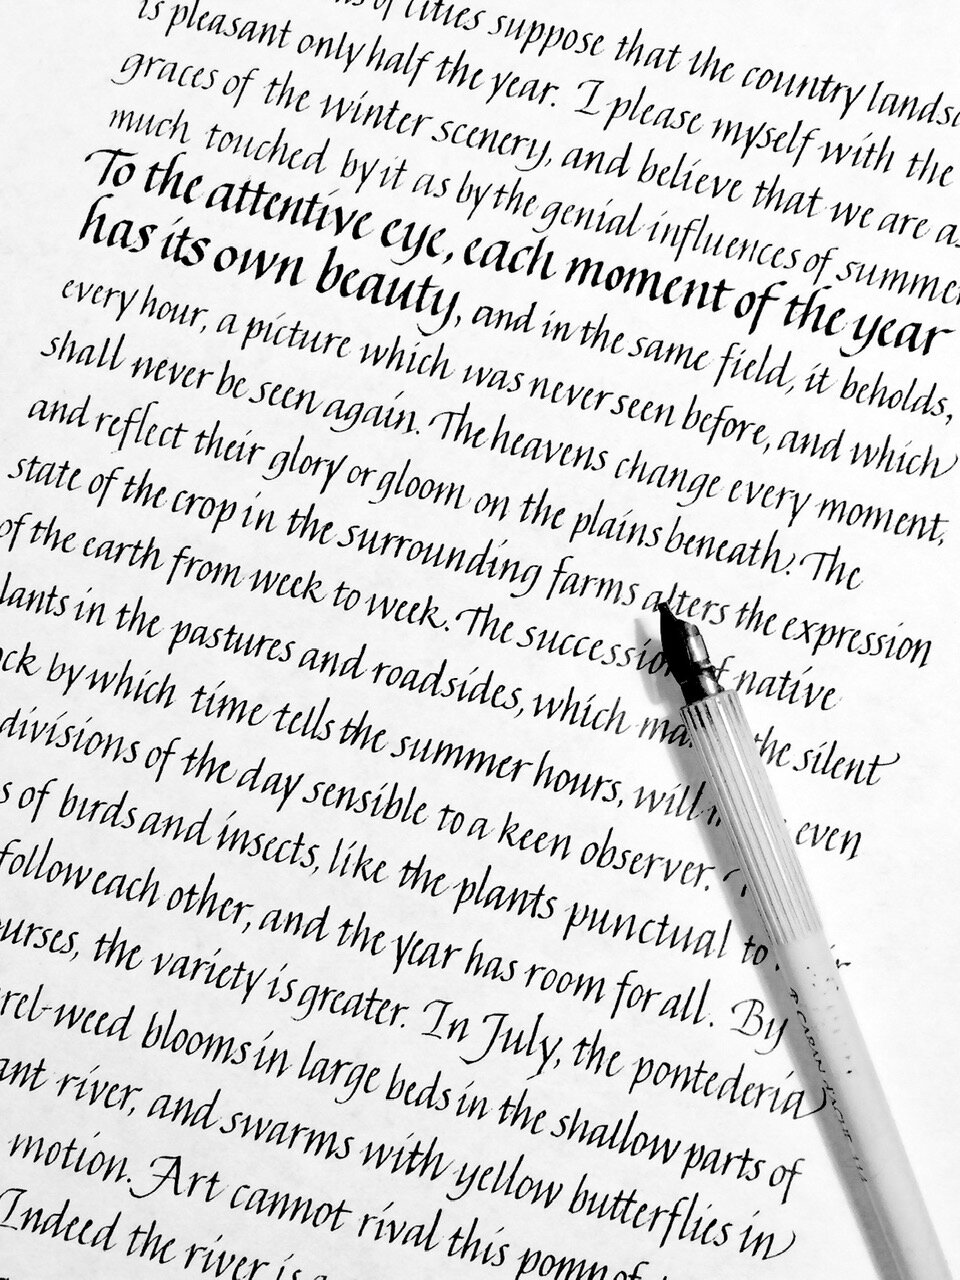 of cities suppose that the country
is pleasant only half the year. I please myself with the
graces of the winter scenery, and believe that we are
much touched by it as by the genial influences of summer
To the attentive eye, each moment of the year
has its own beauty, and in the same field, it beholds,
every hour, a picture which was never seen before, and which
shall never be seen again. The heavens change every moment,
and reflect their glory or gloom on the plains beneath. The
state of the crop in the surrounding farms alters the expression
of the earth from week to week. The succession of native
lants in the pastures and roadsides, which the silent
ock by which time tells the summer hours, will even
divisions of the day sensible to a keen observer.
s of birds and insects, like the plants punctual to
follow each other, and the year has room for all. By
urses, the variety is greater. In July, the pontederia
rel-weed blooms in large beds in the shallow parts of
ant river, and swarms with yellow butterflies in
motion. Art cannot rival this pomp of
Indeed the river is